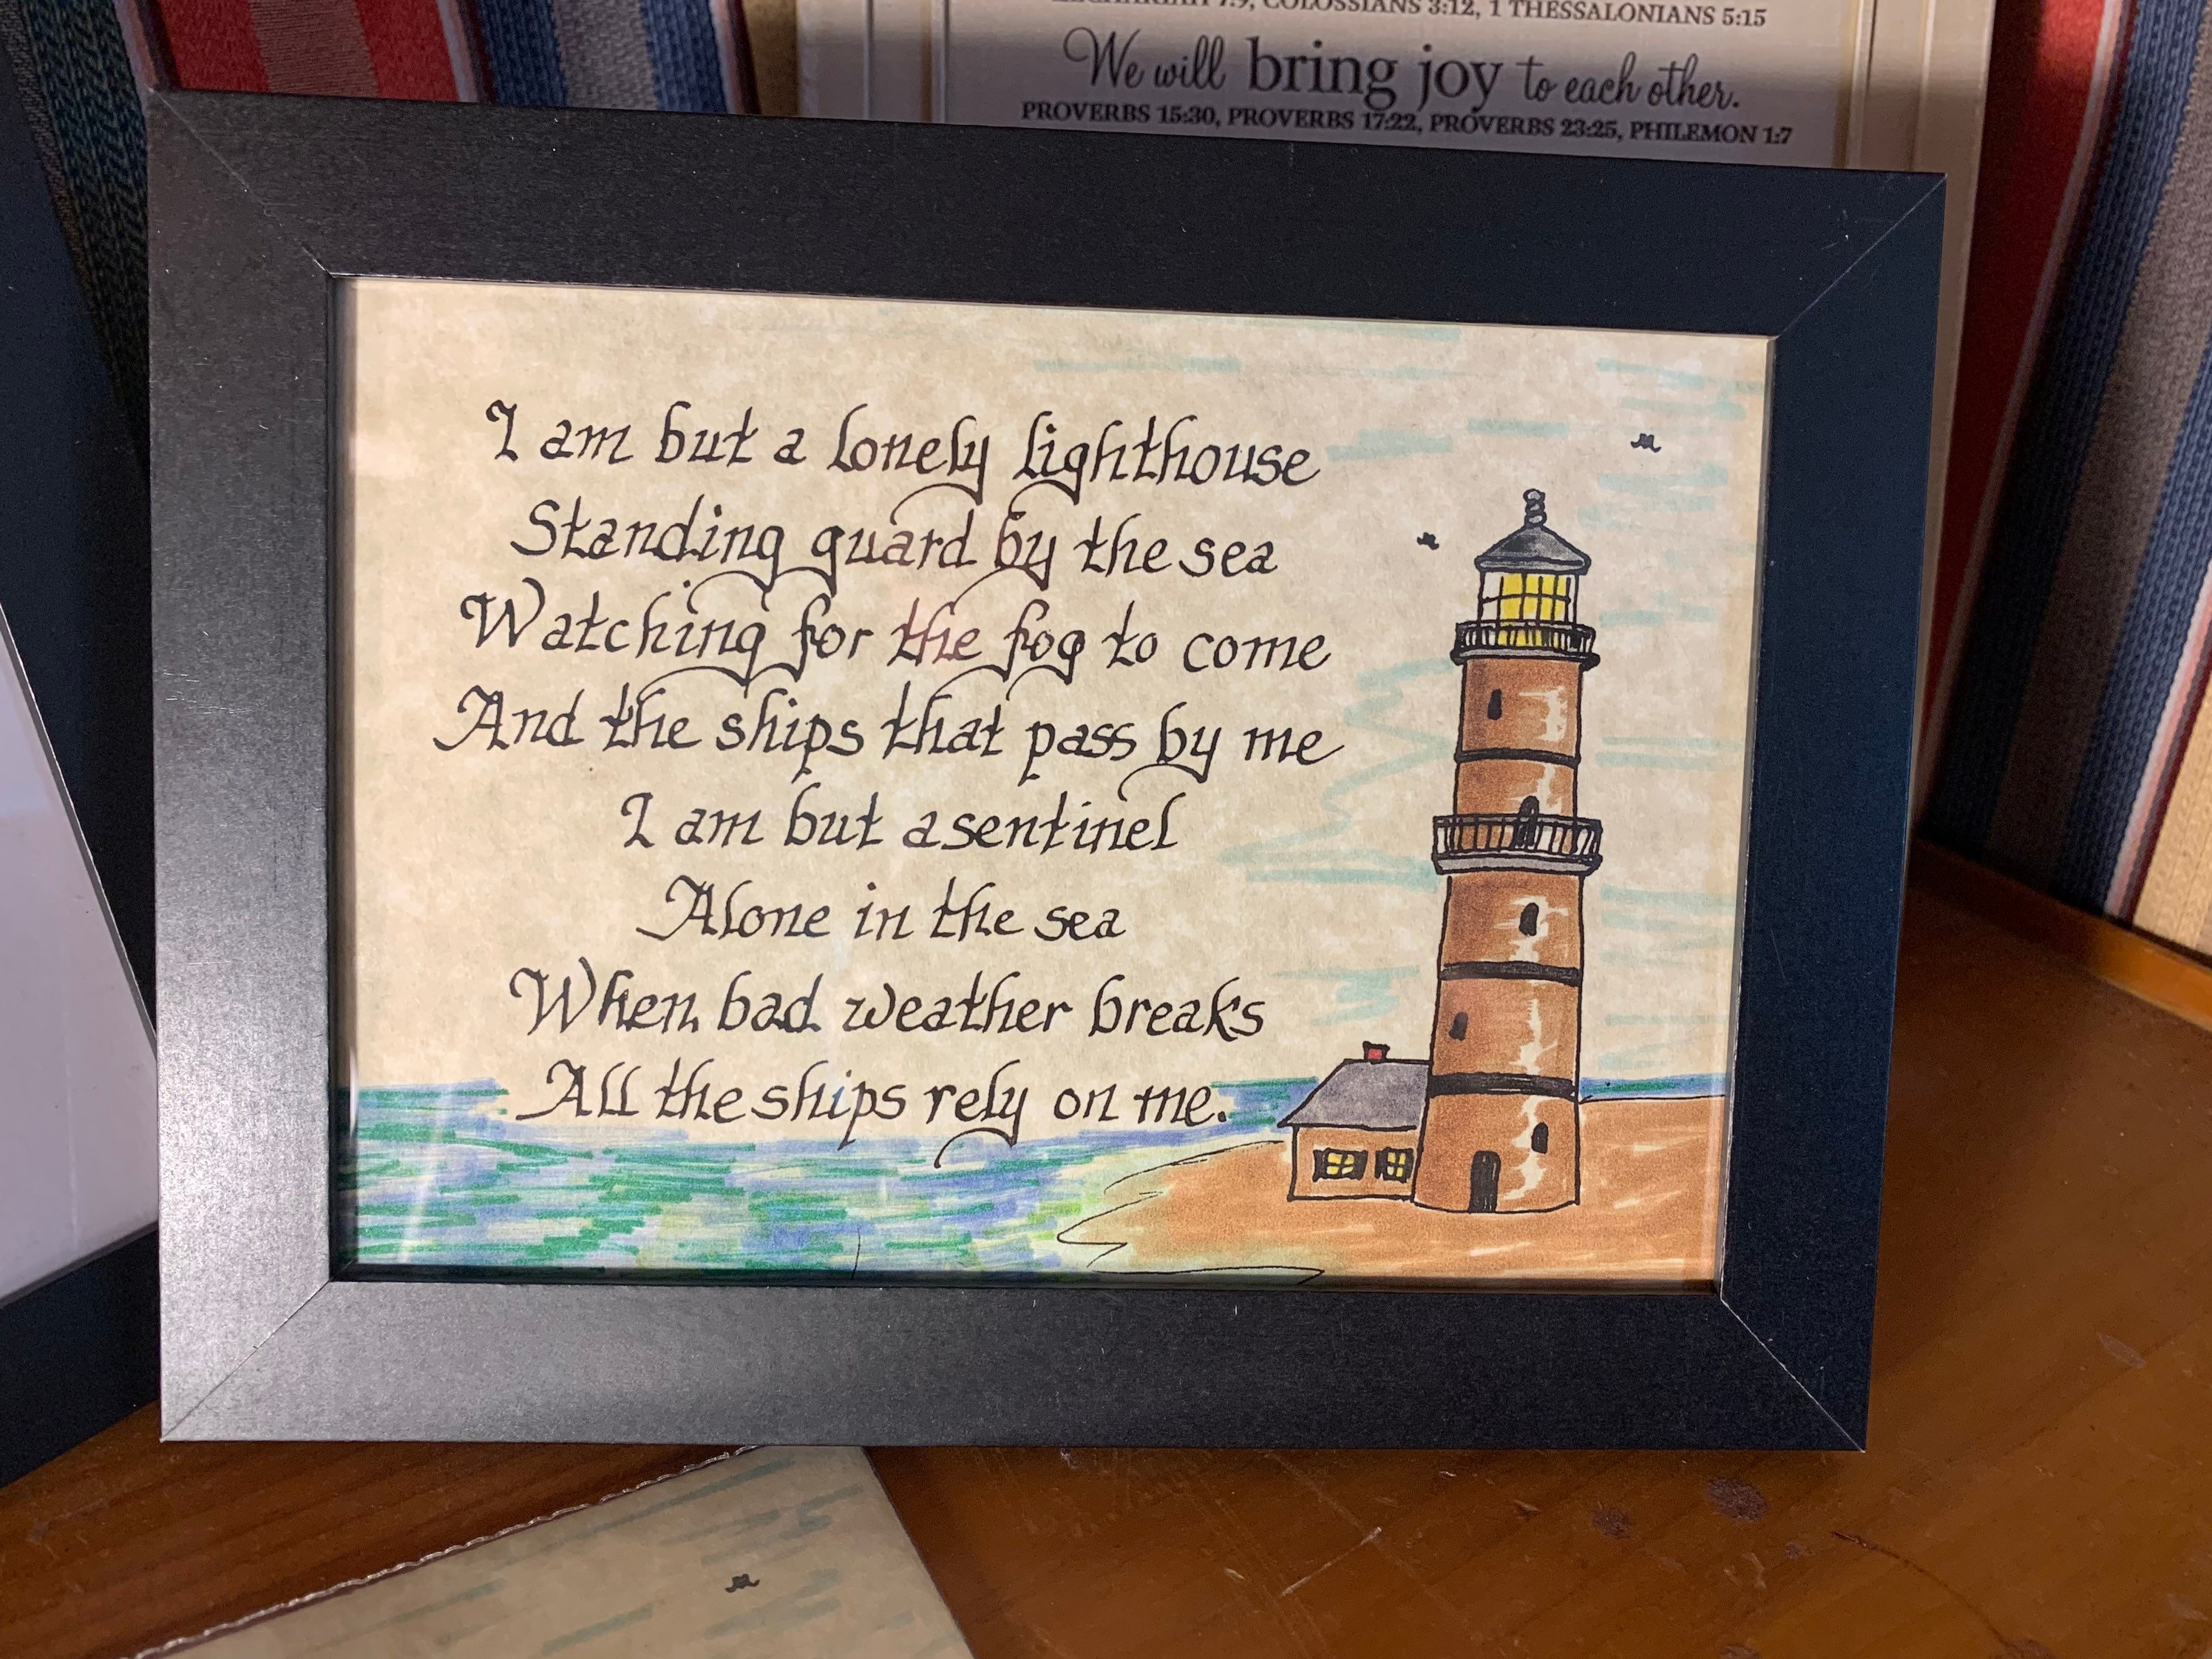 COLOSSIANS 3:12, 1 THESSALONIANS 5:15
We will bring joy to each other.
PROVERBS 15:30, PROVERBS 17:22, PROVERBS 23:25, PHILEMON 1:7
I am but a lonely lighthouse
Standing guard by the sea
Watching for the fog to come
And the ships that pass by me
I am but a sentinel
Alone in the sea
When bad weather breaks
All the ships rely on me.